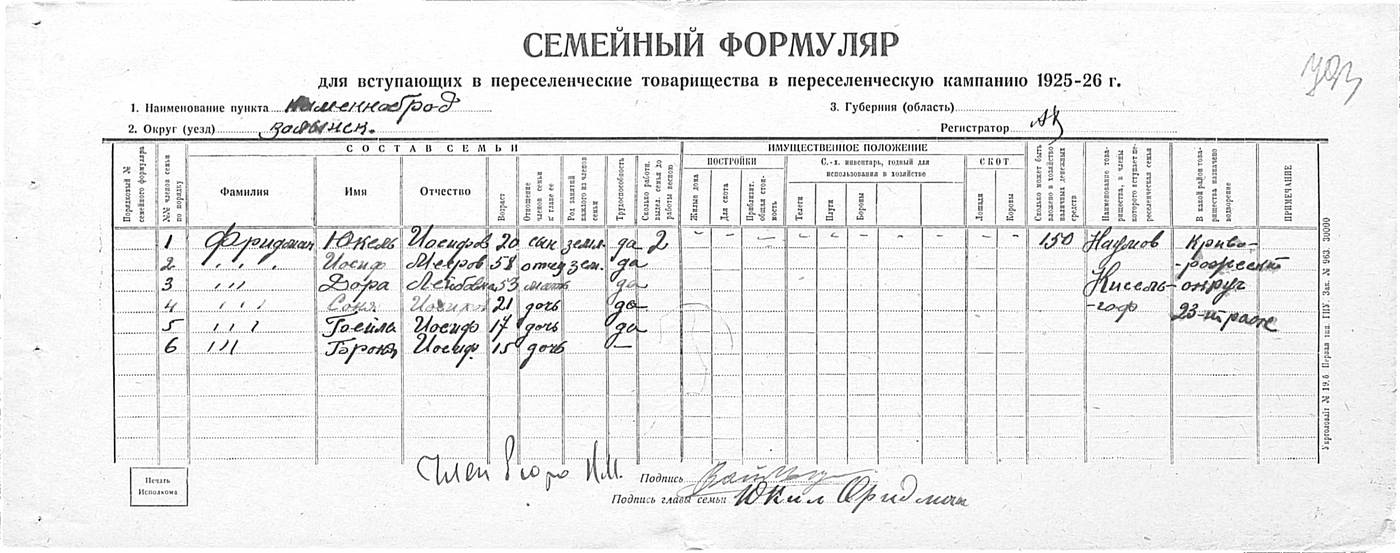 СЕМЕЙНЫЙ ФОРМУЛЯР
для вступающих в переселенческие товарищества в переселенческую кампанию 1925-26 г.
1. Наименование пункта Каменноброд
3. Губерния (область)
2. Округ (уезд) волынск.
Регистратор
СОСТАВ СЕМЬИ
ИМУЩЕСТВЕННОЕ ПОЛОЖЕНИЕ
Порядковый № семейного формуляра
№№ членов семьи по порядку
Фамилия
Имя
Отчество
Возраст
Отношение членов семьи к главе ее
Род занятий каждого из членов семьи
Трудоспособность
Сколько работн. выдел. семья до работы весною
ПОСТРОЙКИ
Жилые дома
Для скота
Приблизит. общая стоимость
С.-х. инвентарь, годный для использования в хозяйстве
Телеги
Плуги
Бороны
СКОТ
Лошади
Коровы
Сколько может быть вложено в хозяйство наличных денежных средств
Наименование товарищества, в члены которого вступает переселенческая семья
В какой район товарищества назначено водворение
ПРИМЕЧАНИЕ
1 Фридман Юкель Иосифов 20 сын земл. да 2 – – – – – – – – – – 150 Наумов Криво-
2 ,,, Иосиф Мееров 58 отец зем. да -рожский
3 ,,, Дора Лейбовна 53 мать да Кисель- округ
4 ,,, Соня Иосифов 21 дочь да -гоф 23-й
5 ,,, Иосиф 17 дочь да
6 ,,, Иосиф. 15 дочь –
Член Бюро Н.М. Подпись
Подпись главы семьи Юкил Фридман
Печать
Исполкома
Укрголовліт № 19.6 Первая тип. ГПУ. Зак. № 963. 30000